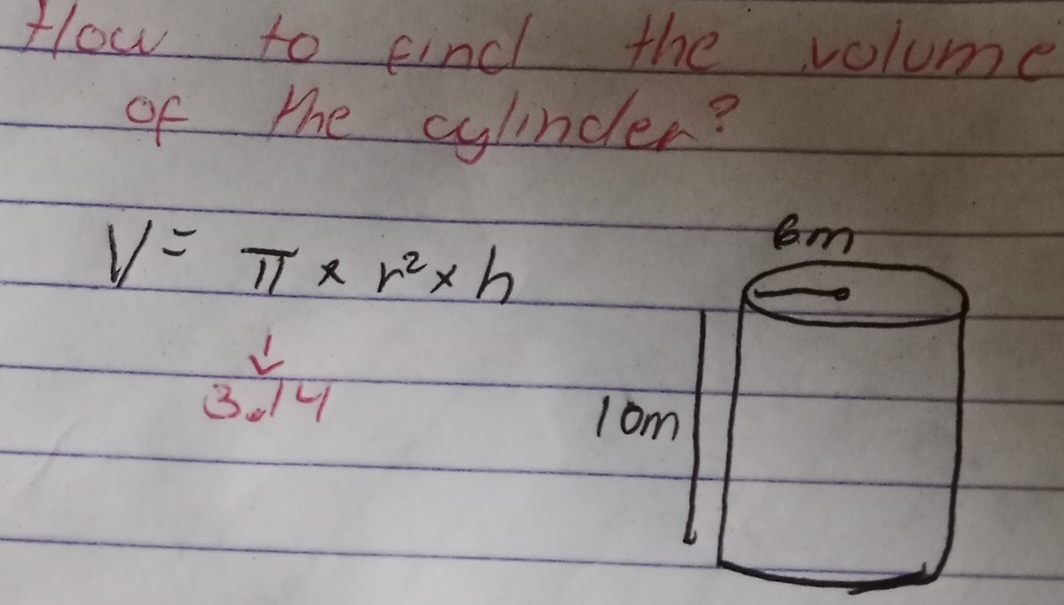 How to find the volume
of the cylinder?
V = π × r² × h
↓
3.14
6m
10m